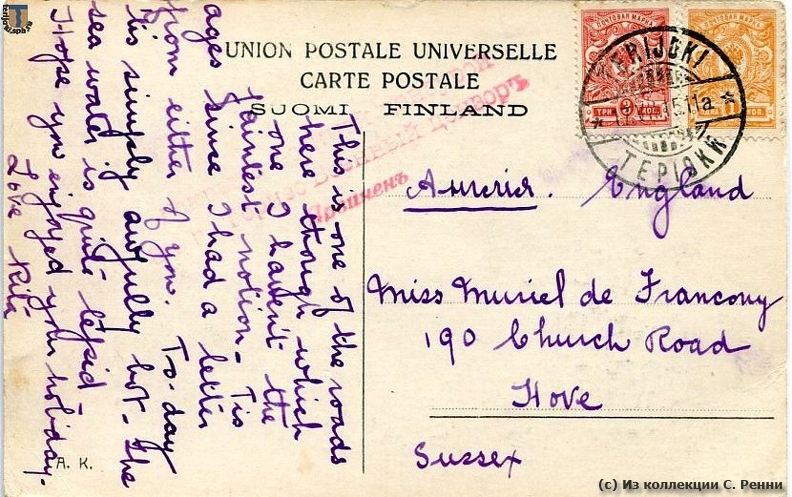 UNION POSTALE UNIVERSELLE
CARTE POSTALE
SUOMI FINLAND
ПОЧТОВАЯ МАРКА
ТРИ 3 КОП.
ПОЧТОВАЯ МАРКА
1
TERIJOKI
15.11a
ТЕРІОКИ
Военный Цензоръ
This is one of the roads
here though which
one I haven't the
faintest notion - Tis
ages since I had a letter
from either of you. To-day
tis simply awfully hot - the
sea water is quite tepid -
Hope you enjoyed your holiday.
Love Rita
Англія. England
Miss Muriel de Francony
190 Church Road
Hove
Sussex
A. K.
terijoki.spb.ru
(c) Из коллекции С. Ренни